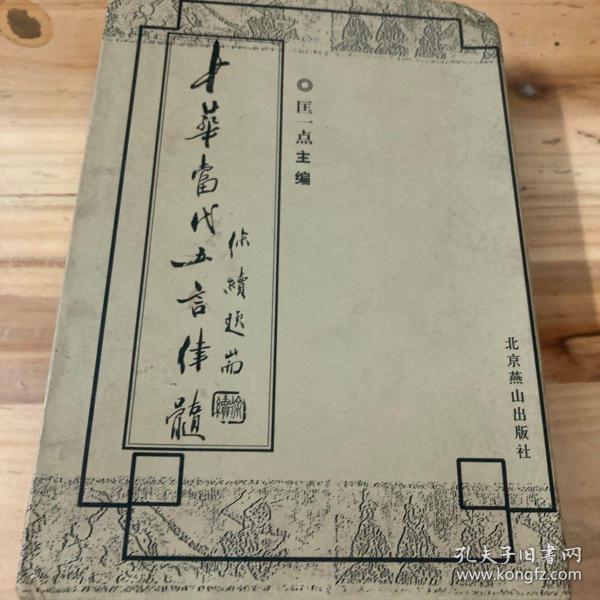 中華當代五言律髓
徐續題耑
徐續
◎匡一点主编
北京燕山出版社
孔夫子旧书网
www.kongfz.com